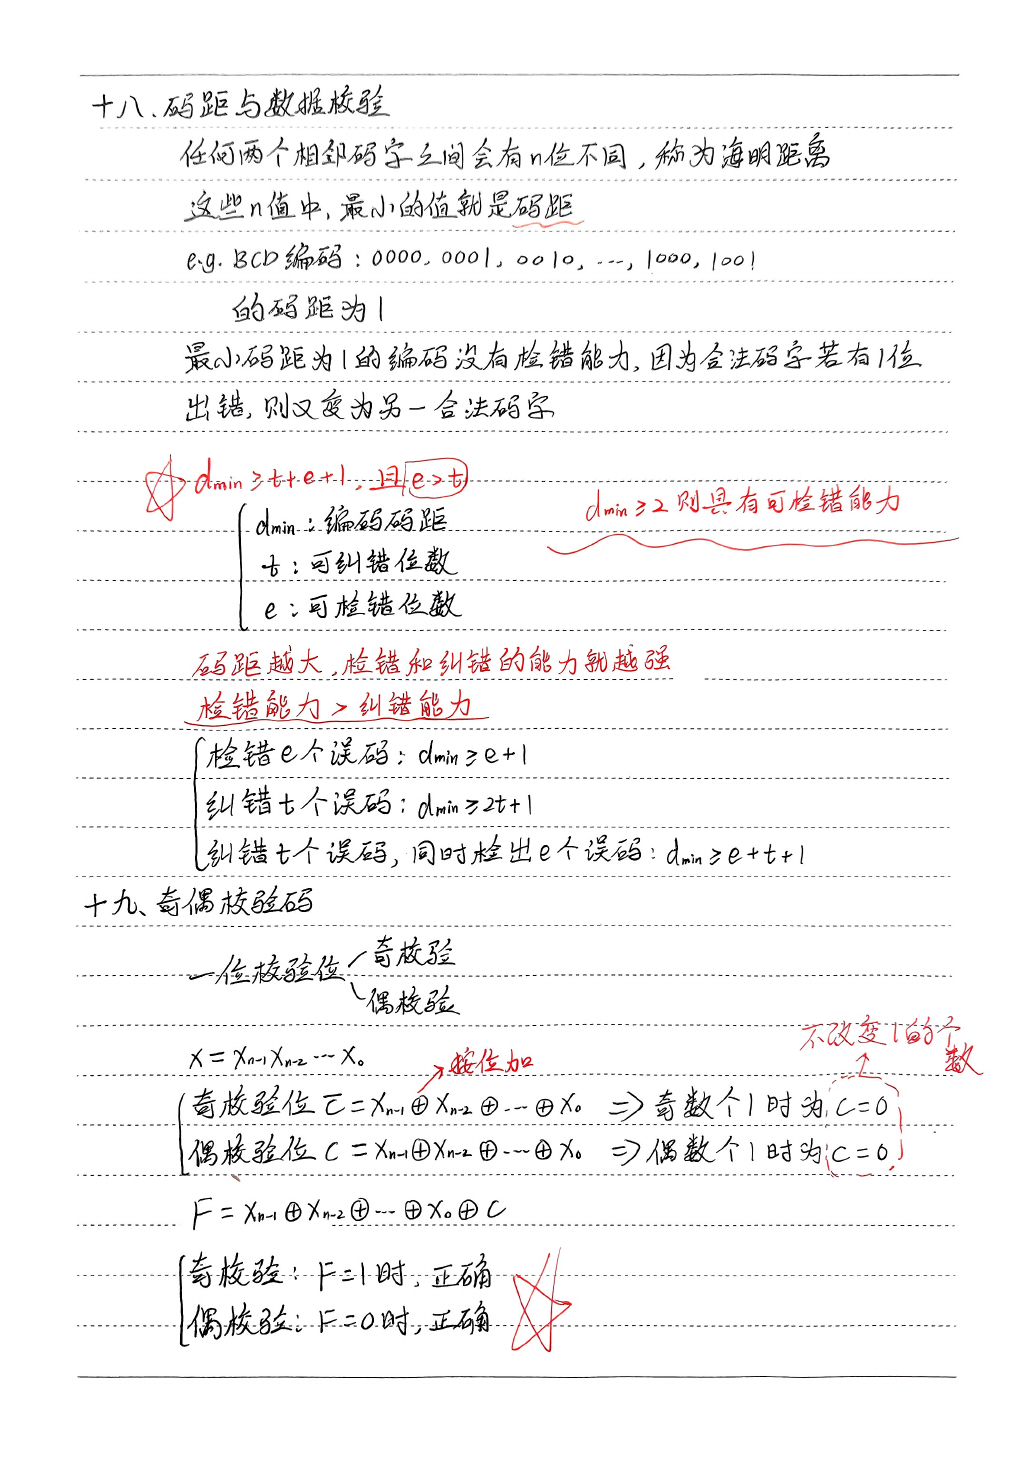 十八、码距与数据校验
任何两个相邻码字之间会有n位不同，称为海明距离
这些n值中，最小的值就是码距
e.g. BCD编码：0000，0001，0010，…，1000，1001
的码距为1
最小码距为1的编码没有检错能力，因为合法码字若有1位
出错，则又变为另一合法码字
dmin≥t+e+1，且e>t
dmin≥2则具有可检错能力
dmin：编码码距
t：可纠错位数
e：可检错位数
码距越大，检错和纠错的能力就越强
检错能力>纠错能力
检错e个误码：dmin≥e+1
纠错t个误码：dmin≥2t+1
纠错t个误码，同时检出e个误码：dmin≥e+t+1
十九、奇偶校验码
一位校验位
奇校验
偶校验
不改变1的个数
X=Xn-1Xn-2…X0
按位加
奇校验位 C̅=Xn-1⊕Xn-2⊕…⊕X0 ⇒奇数个1时为C=0
偶校验位 C=Xn-1⊕Xn-2⊕…⊕X0 ⇒偶数个1时为C=0
F=Xn-1⊕Xn-2⊕…⊕X0⊕C
奇校验：F=1时，正确
偶校验：F=0时，正确